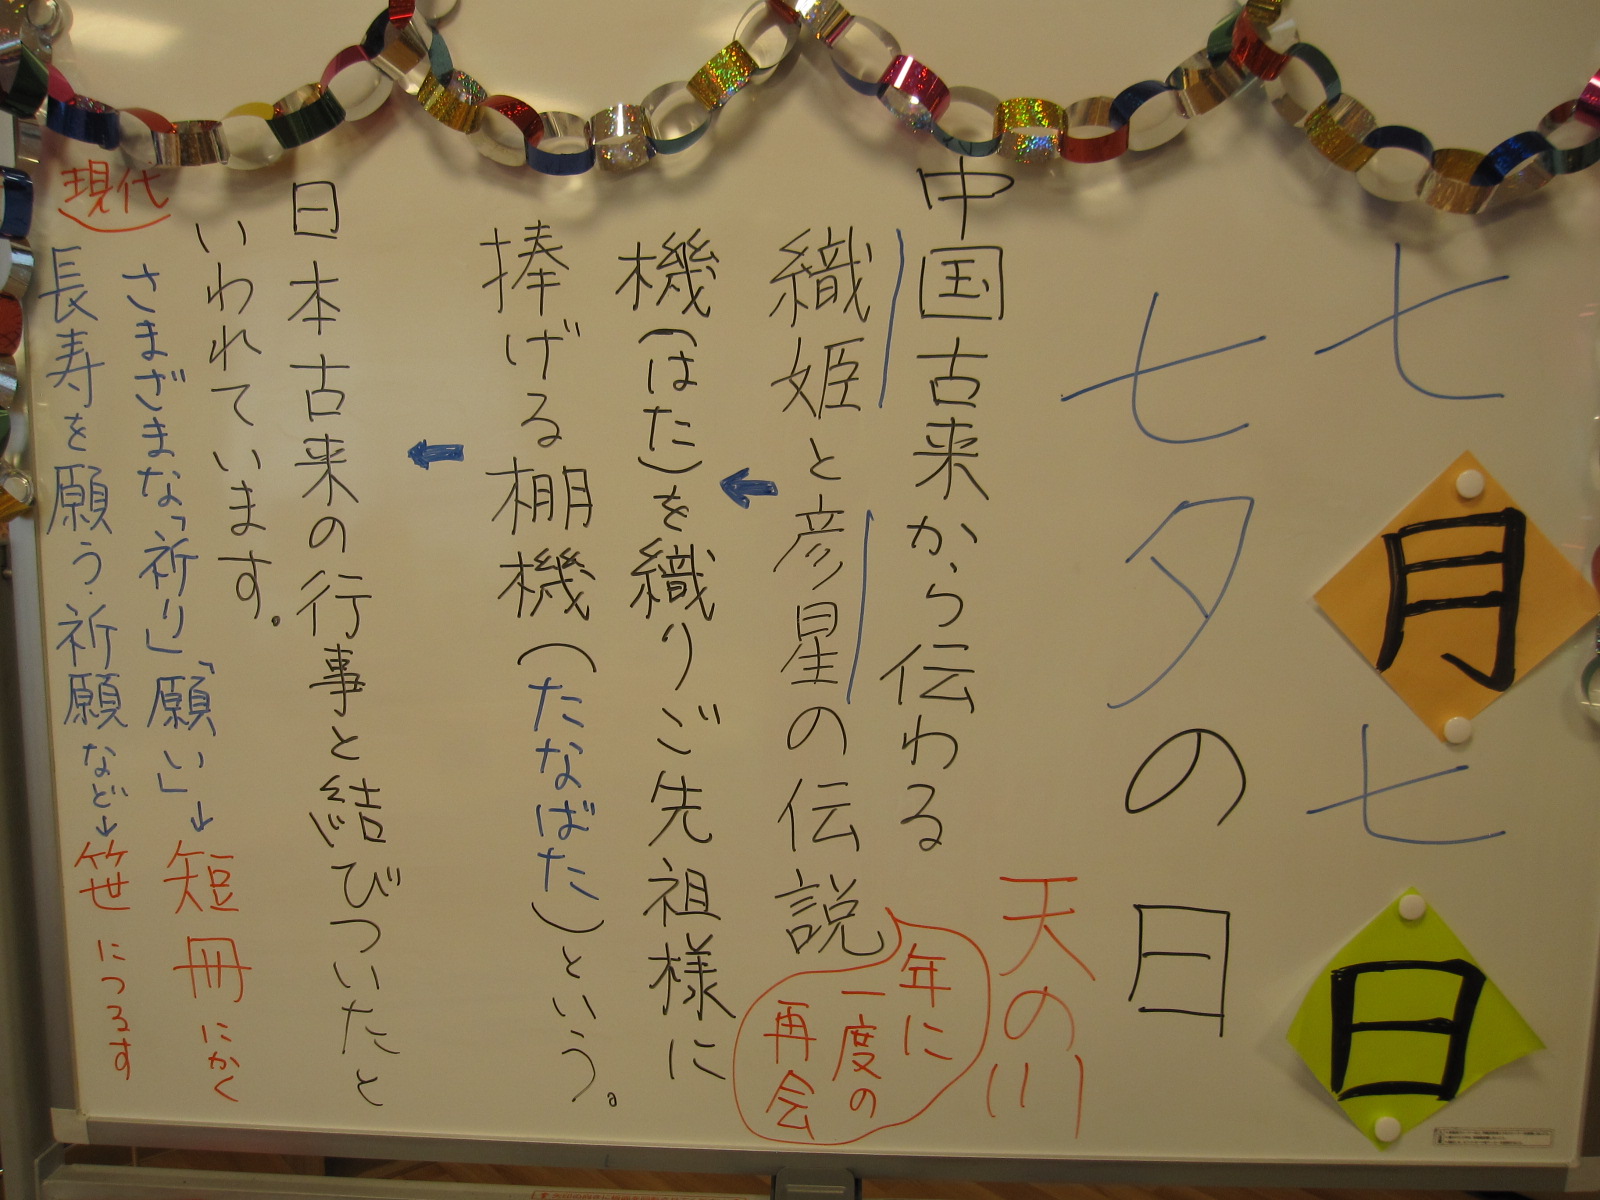 七月七日
七夕の日
中国古来から伝わる
天の川
織姫と彦星の伝説
年に
一度の
再会
機(はた)を織りご先祖様に
捧げる棚機(たなばた)という。
日本古来の行事と結びついたと
いわれています。
現代
さまざまな「祈り」「願い」→短冊にかく
長寿を願う祈願など→笹につるす